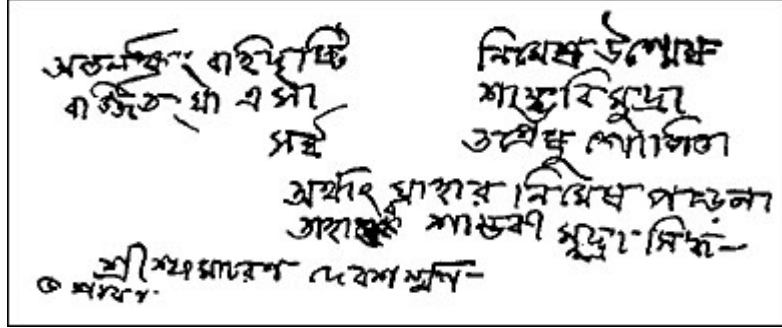 অন্তর্লক্ষং বহির্দৃষ্টি নিমেষ উন্মেষ
বর্জিত যা এসা শাম্ভবি মুদ্রা
সর্ব্ব তন্ত্রেষু গোপিতা
অর্থাৎ যাহার নিমেষ পড়েনা
শাম্ভবী মুদ্রা সিদ্ধ—
দেবশর্ম্মণ—